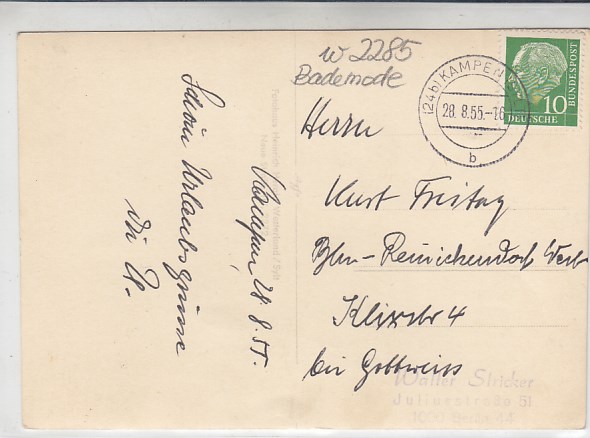 w 2285
Bademode
(24b) KAMPEN
28. 8. 55.-16
b
DEUTSCHE
BUNDESPOST
10
Herrn
Kurt Freitag
Bln-Reinickendorf West
Klixstr 4
bei Gottweiss
Kampen, 28. 8. 55.
Schöne Urlaubsgrüsse
Westerland / Sylt
Walter Stricker
Juliusstraße 51
1000 Berlin 44